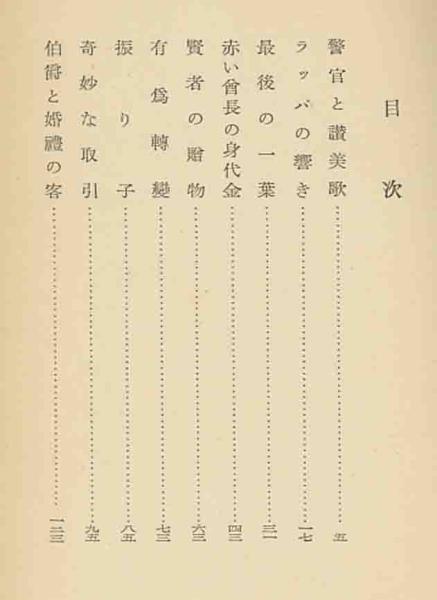 目次
警官と讃美歌……五
ラッパの響き……一七
最後の一葉……三一
赤い酋長の身代金……四三
賢者の贈物……六三
有爲轉變……七三
振り子……八五
奇妙な取引……九五
伯爵と婚禮の客……一二三